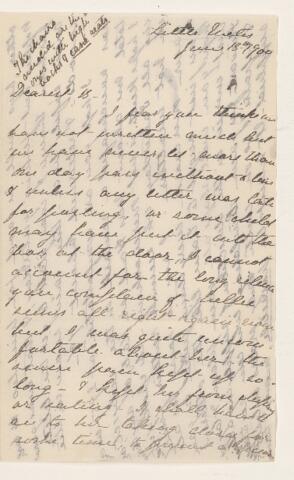 The chairs
needed are the
ones with high
backs & cane seats
Little Metis
June 18th 1900
Dearest B.
I fear you think we
have not written much but
we have never let more than
one day pass without a line
& unless any letter was late
for posting, or some child
may have put it into the
box at the door, I cannot
account for the long silence
you complain of. Nellie
seems all right again now
but I was quite uncom-
fortable about her, the
severe pain kept up so
long. I kept her from
or eating. I shall
as to her for
some time, to